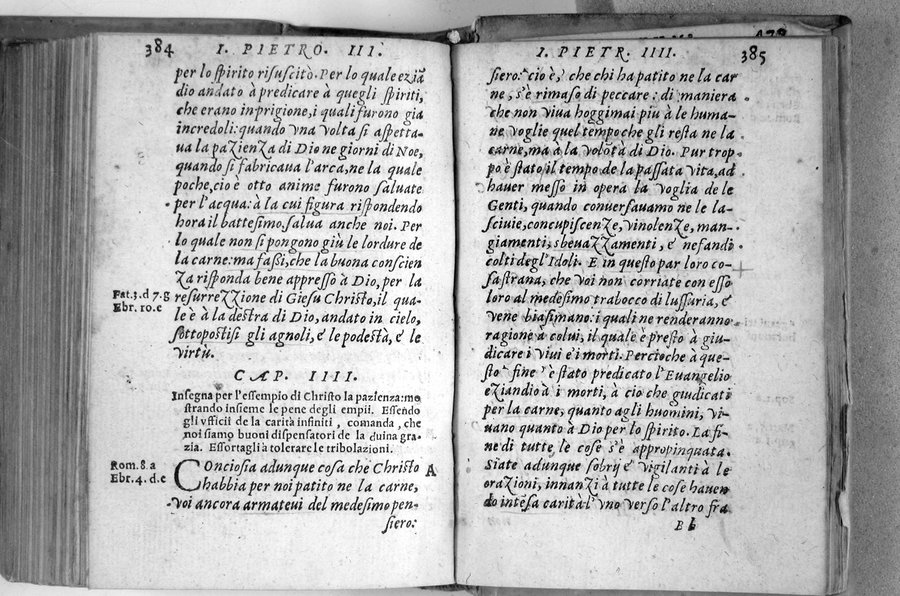 384 I. PIETRO. III.
per lo spirito risuscitò. Per lo quale eziā
dio andato à predicare à quegli spiriti,
che erano in prigione, i quali furono gia
increduli: quando vna volta si aspetta-
ua la pazienza di Dio ne giorni di Noe,
quando si fabricaua l'arca, ne la quale
poche, cio è otto anime furono saluate
per l'acqua: à la cui figura rispondendo
hora il battesimo, salua anche noi. Per
lo quale non si pongono giù le lordure de
la carne: ma fassi, che la buona conscien
za risponda bene appressò à Dio, per la
Fat. 3. d 7. g
Ebr. 10. c
resurrezzione di Giesu Christo, il qua-
le è à la destra di Dio, andato in cielo,
sottopostisi gli agnoli, e le podestà, e le
virtù.
CAP. IIII.
Insegna per l'essempio di Christo la pazienza: mo
strando insieme le pene degli empii. Essendo
gli vfficii de la carità infiniti, comanda, che
noi siamo buoni dispensatori de la diuina gra-
zia. Essortagli à tolerare le tribolazioni.
Rom. 8. a
Ebr. 4. d. e
Conciosia adunque cosa che Christo A
habbia per noi patito ne la carne,
voi ancora armateui del medesimo pen-
siero:
I. PIETR. IIII. 385
siero: cio è, che chi ha patito ne la car
ne, s'è rimaso di peccare: di maniera
che non viua hoggimai più à le huma-
ne voglie quel tempo che gli resta ne la
carne, ma à la volōtà di Dio. Pur trop
po è stato il tempo de la passata vita, ad
hauer messo in opera la voglia de le
Genti, quando conuersauamo ne le la-
sciuie, concupiscenze, vinolenze, man-
giamenti, sbeuazzamenti, e nefandi
colti degl'Idoli. E in questo par loro co-
sa strana, che voi non corriate con esso
loro al medesimo trabocco di lussuria, e
vene biasimano: i quali ne renderanno
ragione à colui, il quale è presto à giu-
dicare i viui e i morti. Percioche à que-
sto fine è stato predicato l'Euangelio
eziandio à i morti, à ciò che giudicati
per la carne, quanto agli huomini, vi-
uano quanto à Dio per lo spirito. La fi-
ne di tutte le cose s'è appropinquata.
Siate adunque sobrij e vigilanti à le
orazioni, innanzi à tutte le cose hauen
do intesa carità l'vno verso l'altro fra